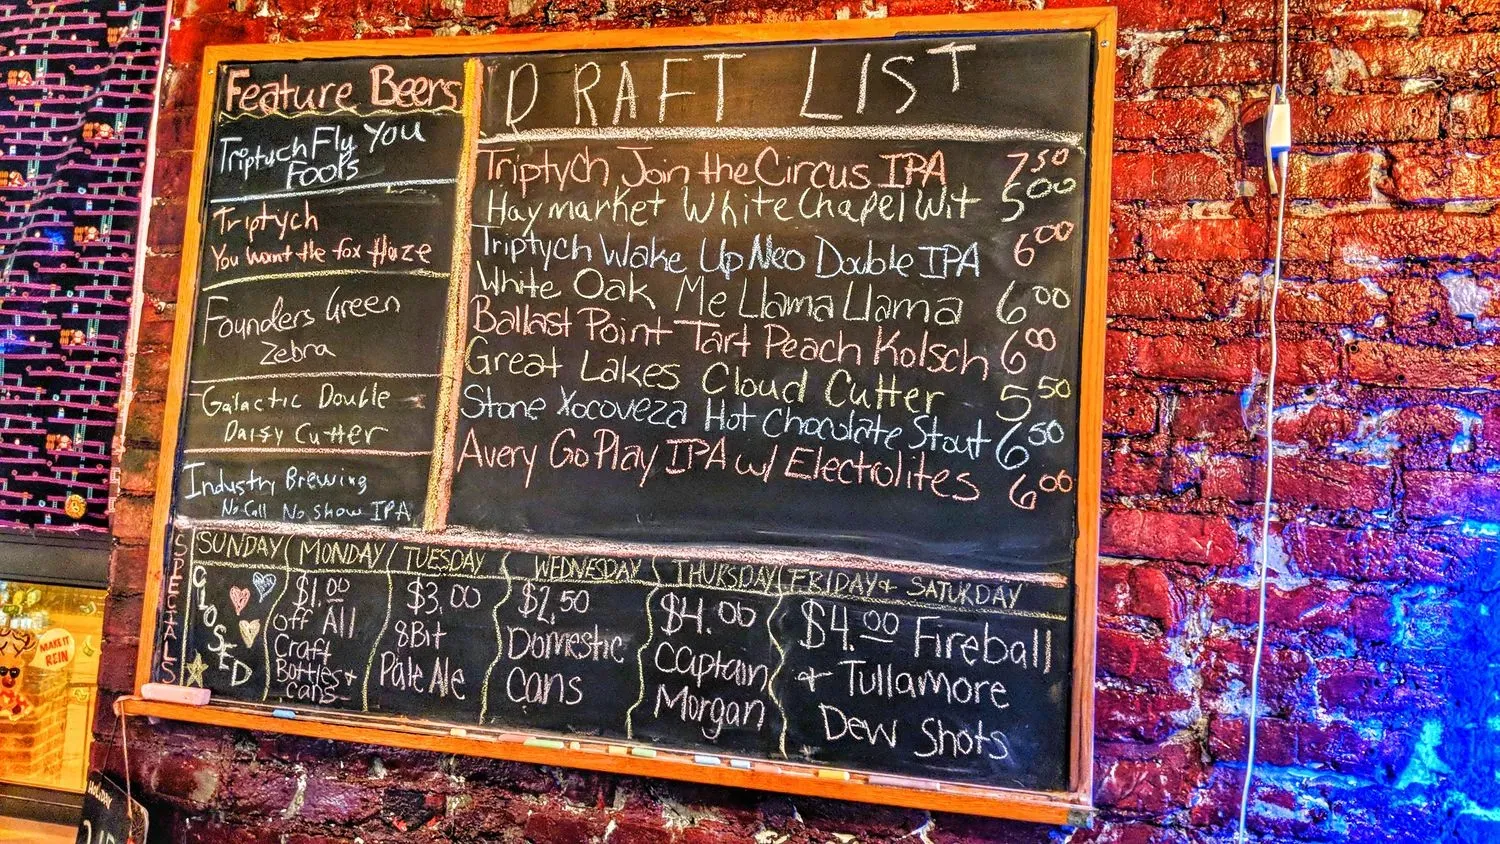 Feature Beers
Triptych Fly You
Fools
Triptych
You want the fox Haze
Founders Green
Zebra
Galactic Double
Daisy Cutter
Industry Brewing
No Call No Show IPA
DRAFT LIST
Triptych Join the Circus IPA 7.50
Haymarket White Chapel Wit 5.00
Triptych Wake Up Neo Double IPA 6.00
White Oak Me Llama Llama 6.00
Ballast Point Tart Peach Kolsch 6.00
Great Lakes Cloud Cutter 5.50
Stone Xocoveza Hot Chocolate Stout 6.50
Avery Go Play IPA w/ Electrolites 6.00
SPECIALS
SUNDAY
CLOSED
MONDAY
$1.00
off All
Craft
Bottles +
cans
TUESDAY
$3.00
8Bit
Pale Ale
WEDNESDAY
$2.50
Domestic
Cans
THURSDAY
$4.00
Captain
Morgan
FRIDAY + SATURDAY
$4.00 Fireball
+ Tullamore
Dew Shots
MAKE IT
REIN